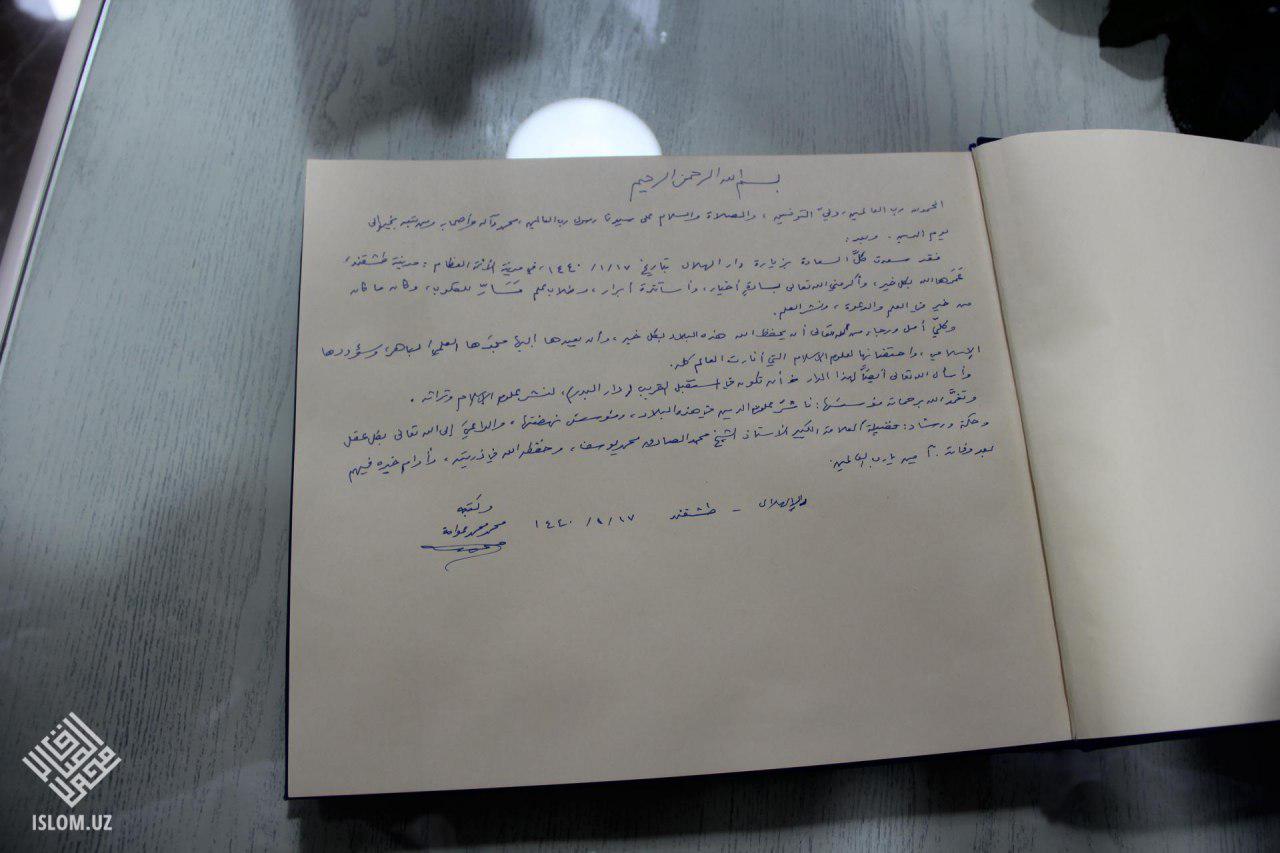 بسم الله الرحمن الرحيم
الحمد لله رب العالمين، وليّ التوفيق، والصلاة والسلام على سيدنا رسول رب العالمين، محمد وآله وأصحابه ومن تبعه بخير إلى
يوم الدين. وبعد:
فقد سعدت كلَّ السعادة بزيارة دار الهلال بتاريخ ١٤٤٠/١/١٧، في مدينة الأئمة العظام: مدينة طشقند،
عَمَرها الله بكل خير، وأكرمني الله تعالى بسادةٍ أخيار، وأساتذة أبرار، وطلاب علم، وكان ما كان
من خير في العلم والدعوة، ونشر العلم.
وكليّ أمل ورجاء من الله تعالى أن يحفظ الله هذه البلاد بكل خير، وأن يعيدها إليها مجدَها العلمي الباهر، وسؤددها
الإسلامي، واحتضانها لعلوم الإسلام التي أنارت العالم كله.
وأسأل الله تعالى أيضاً لهذا الدار أن تكون في المستقبل القريب (دار البدر)، لنشر علوم الإسلام وتراثه.
وتغمَّد الله برحماته مؤسسَها: ناشرَ علوم الدين في هذه البلاد، ومؤسسَ نهضتها، والداعيَ إلى الله تعالى بكل عقل
وحكمة ورشاد: فضيلة العلامة الكبير الأستاذ الشيخ محمد الصادق محمد يوسف، وحفظه الله في ذريته، وأدام خيره فيهم
بعد وفاته. آمين يا رب العالمين.
دار الهلال - طشقند ١٤٤٠/١/١٧
وكتبه
محمد عوامة
ISLOM.UZ